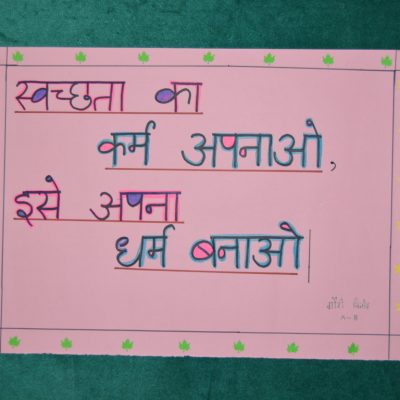 स्वच्छता का
कर्म अपनाओ,
इसे अपना
धर्म बनाओ|